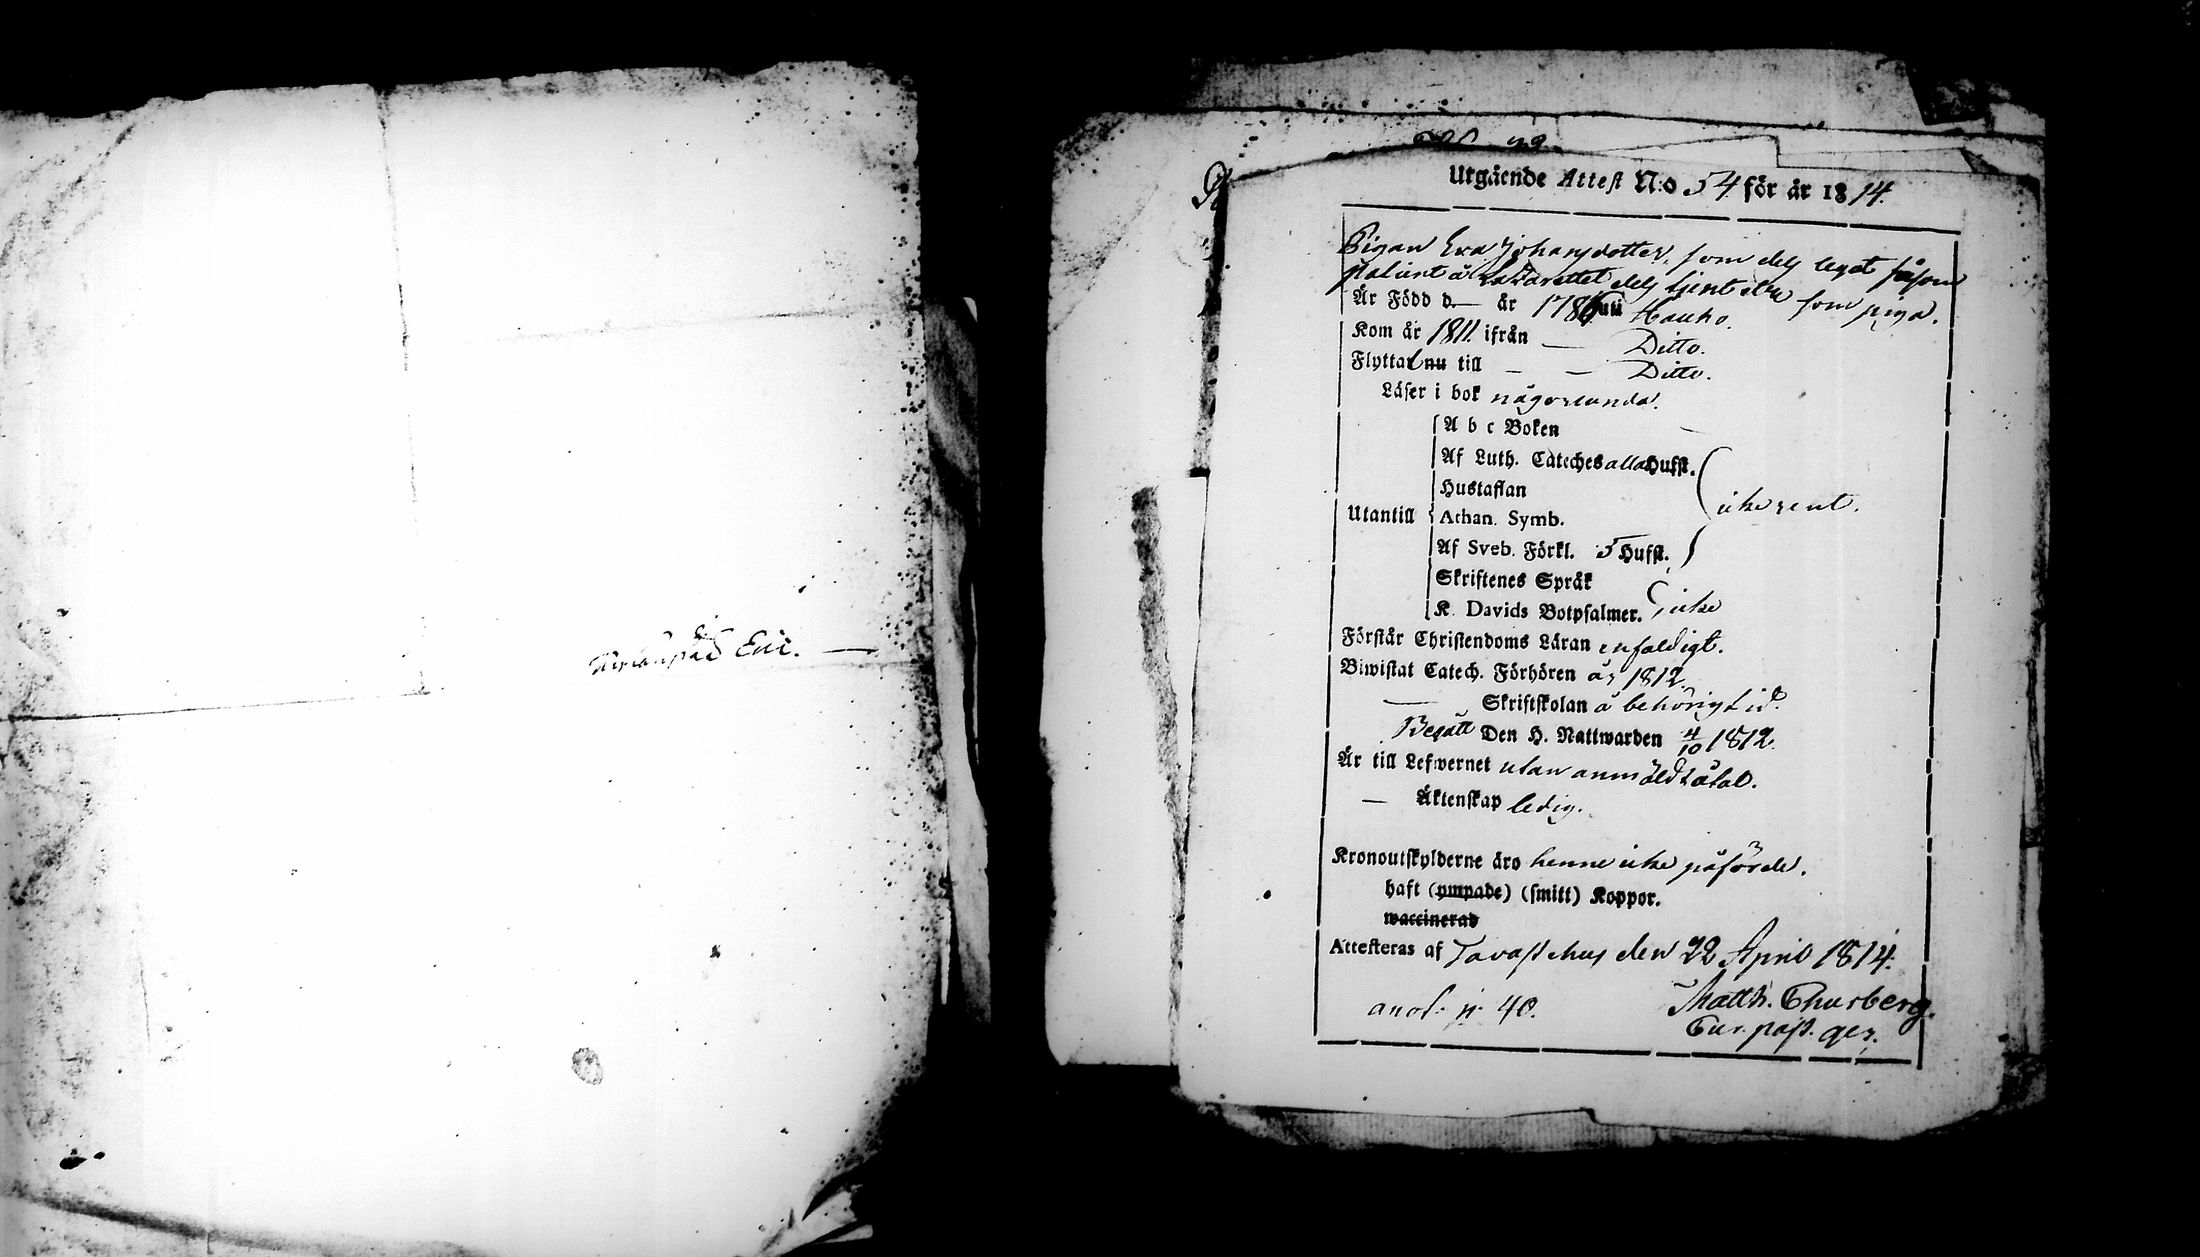 Eric. —
N:o 49
Utgående Attest N:o 54 för år 1814.
Pigan Eva Johansdotter, som dels legat såsom
patient å Lazarettet dels tjent som piga.
Är Född d. — år 1786 uti Hauho.
Kom år 1811. ifrån — Ditto.
Flyttat nu till — — Ditto.
Läser i bok någorlunda.
A b c Boken
Af Luth. Cateches alla Hufst.
Hustaflan
Utantill Athan. Symb. icke rent.
Af Sveb. Förkl. 5 Hufst.
Skriftenes Språk
K. Davids Botpsalmer. icke
Förstår Christendoms Läran enfaldigt.
Biwistat Catech. Förhören år 1812.
— Skriftskolan å behörig tid.
Begått Den H. Nattwarden 4/10 1812.
Är till Lefwernet utan anmäldt åtal.
— Äktenskap ledig.
Kronoutskylderne äro henne icke påförde.
haft (ympade) (smitt) Koppor.
waccinerad
Attesteras af Tavastehus den 22 April 1814.
anot: n: 40. Matth. Thusberg.
Cur. past. ger.